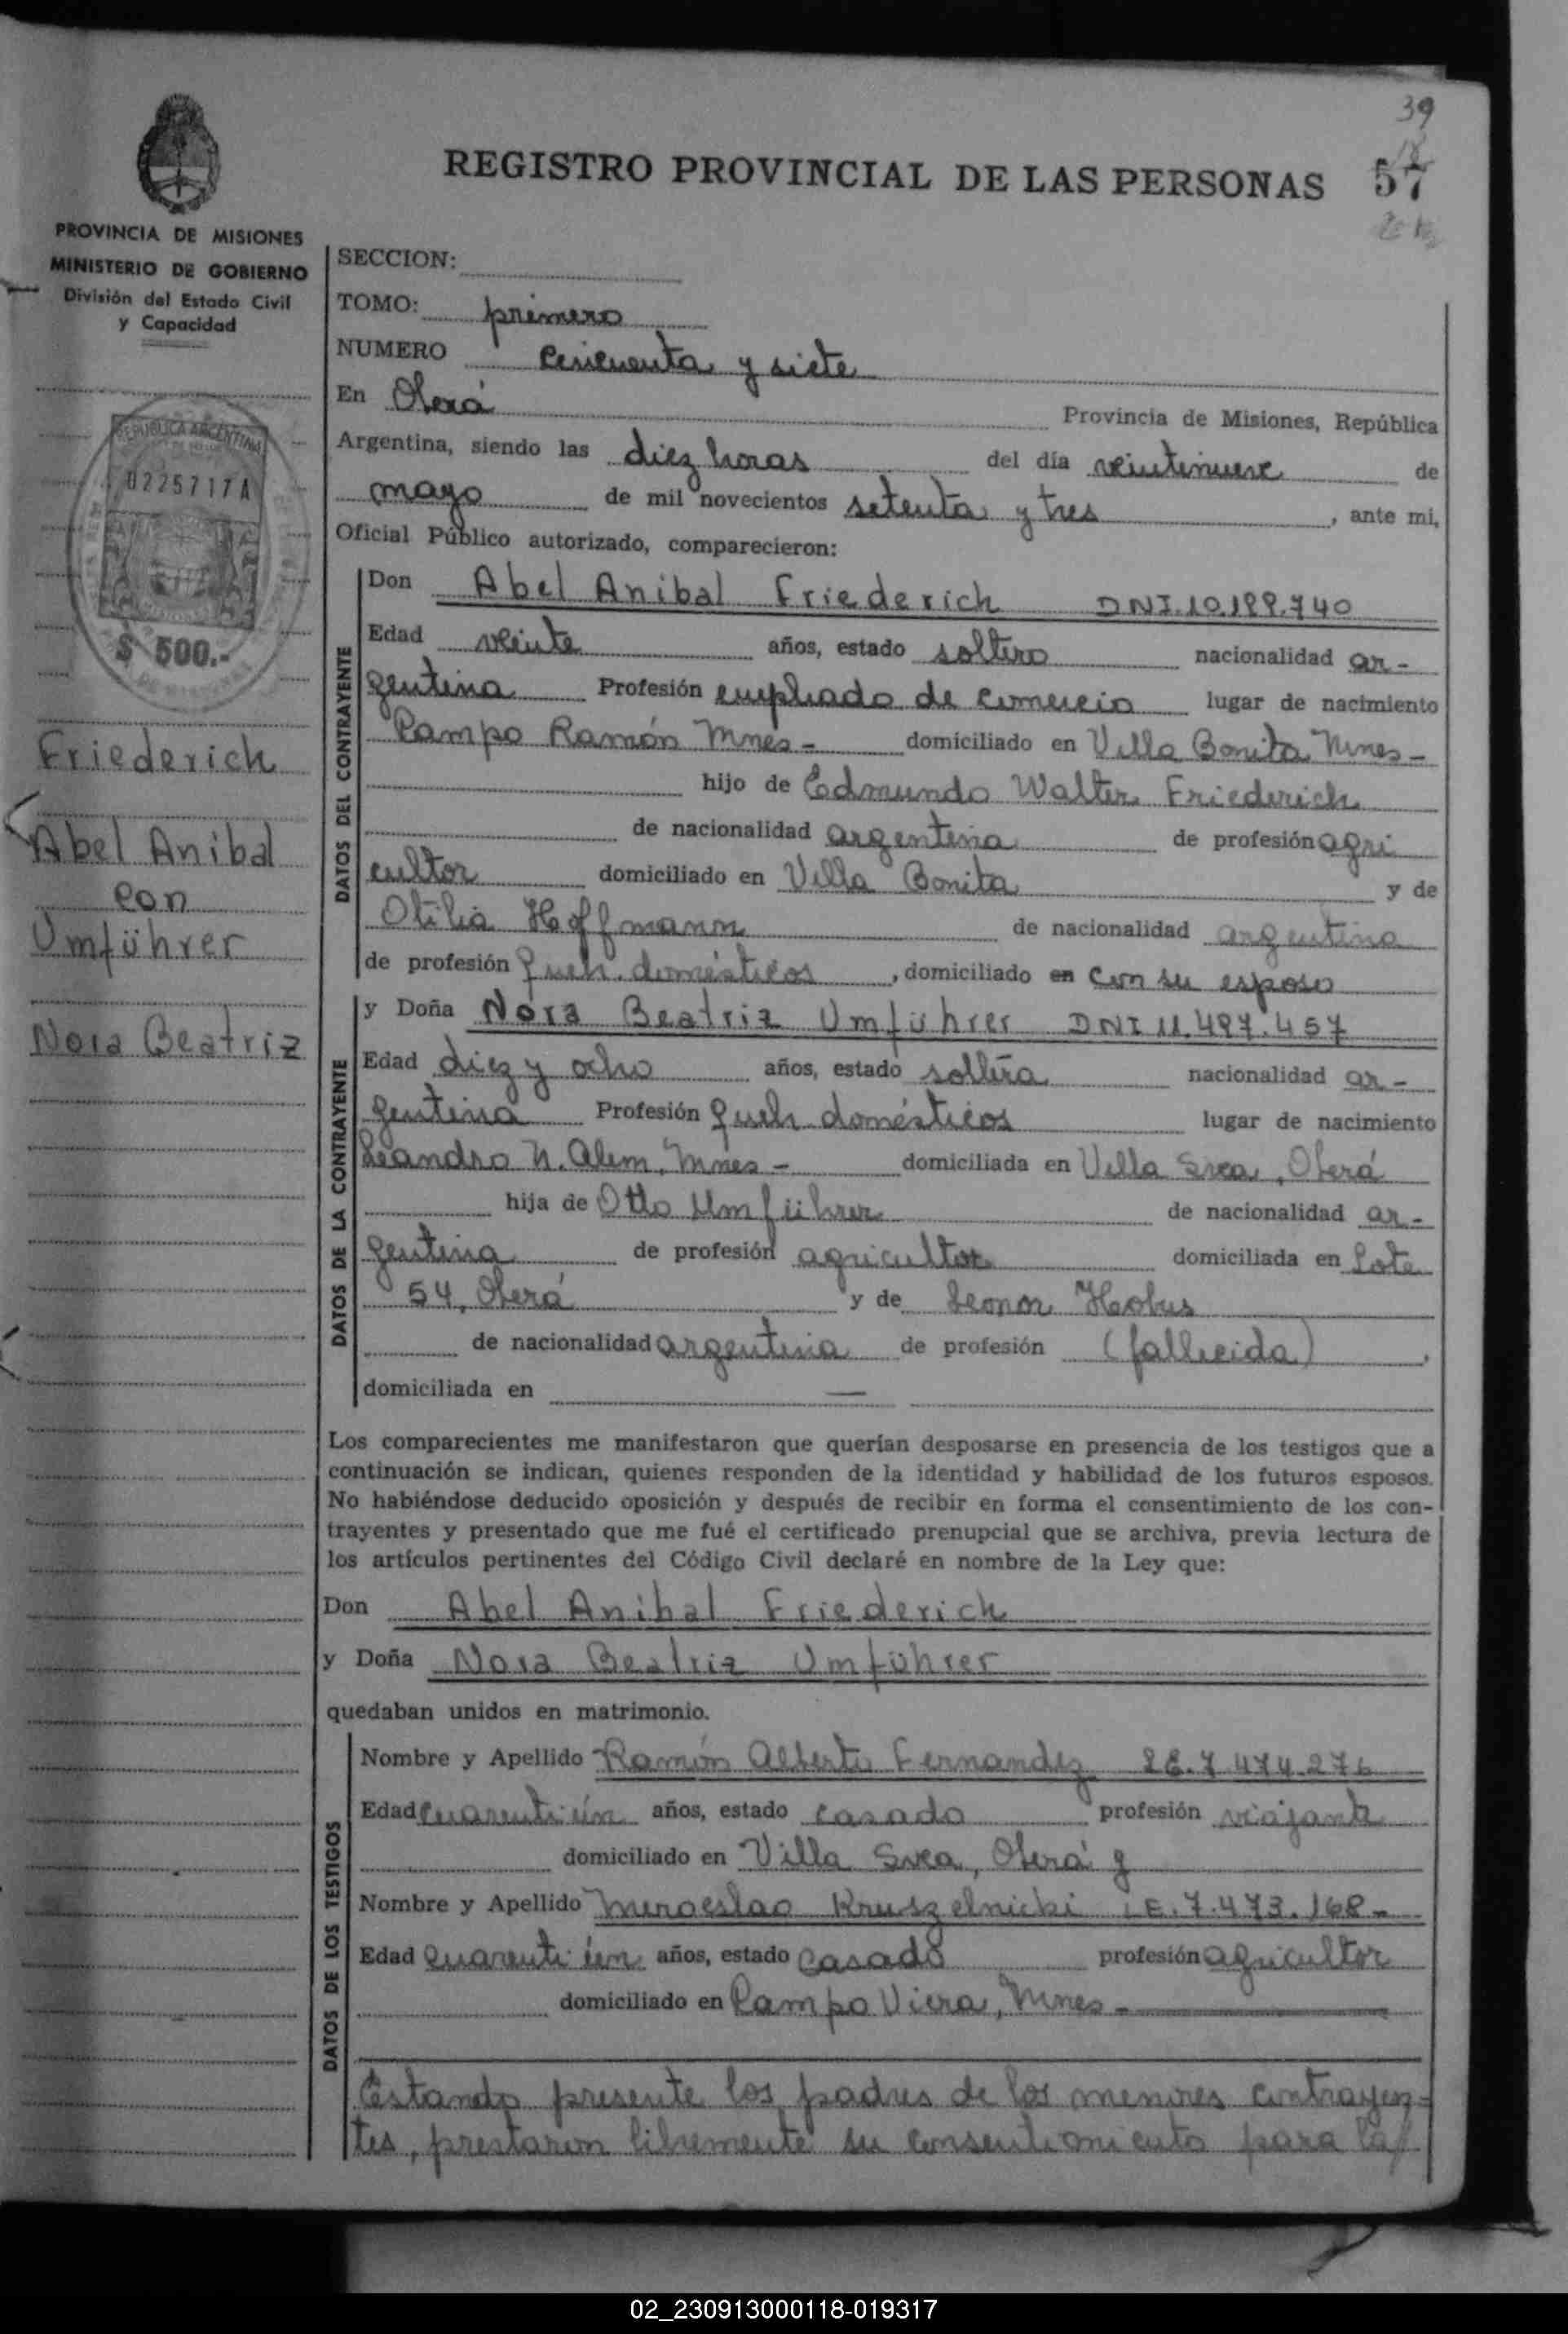 39
REGISTRO PROVINCIAL DE LAS PERSONAS 57
PROVINCIA DE MISIONES
MINISTERIO DE GOBIERNO
División del Estado Civil
y Capacidad
REPUBLICA ARGENTINA
0225717A
$ 500.-
Friederich
Abel Anibal
con
Umführer
Nora Beatriz
SECCION:
TOMO: primero
NUMERO cincuenta y siete
En Oberá Provincia de Misiones, República
Argentina, siendo las diez horas del día veintinueve de
mayo de mil novecientos setenta y tres, ante mi,
Oficial Público autorizado, comparecieron:
DATOS DEL CONTRAYENTE
Don Abel Anibal Friederich DNI.10.199.740
Edad veinte años, estado soltero nacionalidad ar-
gentina Profesión empleado de comercio lugar de nacimiento
Campo Ramón Mnes- domiciliado en Villa Bonita Mnes-
hijo de Edmundo Walter Friederich
de nacionalidad argentina de profesión agri
cultor domiciliado en Villa Bonita y de
Otilia Hoffmann de nacionalidad argentina
de profesión queh. domésticos, domiciliado en con su esposo
DATOS DE LA CONTRAYENTE
y Doña Nora Beatriz Umführer DNI 11.497.457
Edad diez y ocho años, estado soltera nacionalidad ar-
gentina Profesión queh domésticos lugar de nacimiento
Leandro N. Alem, Mnes- domiciliada en Villa Svea, Oberá
hija de Otto Umführer de nacionalidad ar-
gentina de profesión agricultor domiciliada en Lote
54, Oberá y de Leonor Hobus
de nacionalidad argentina de profesión (fallecida),
domiciliada en —
Los comparecientes me manifestaron que querían desposarse en presencia de los testigos que a
continuación se indican, quienes responden de la identidad y habilidad de los futuros esposos.
No habiéndose deducido oposición y después de recibir en forma el consentimiento de los con-
trayentes y presentado que me fué el certificado prenupcial que se archiva, previa lectura de
los artículos pertinentes del Código Civil declaré en nombre de la Ley que:
Don Abel Anibal Friederich
y Doña Nora Beatriz Umführer
quedaban unidos en matrimonio.
DATOS DE LOS TESTIGOS
Nombre y Apellido Ramón Alberto Fernandez LE.7.474.276
Edad cuarentiún años, estado casado profesión viajante
domiciliado en Villa Svea, Oberá y
Nombre y Apellido Miroeslao Kruszelnicki LE.7.473.168-
Edad cuarentiún años, estado casado profesión agricultor
domiciliado en Campo Viera, Mnes-
Estando presente los padres de los menores contrayen-
tes, prestaron libremente su consentimiento para la
02_230913000118-019317